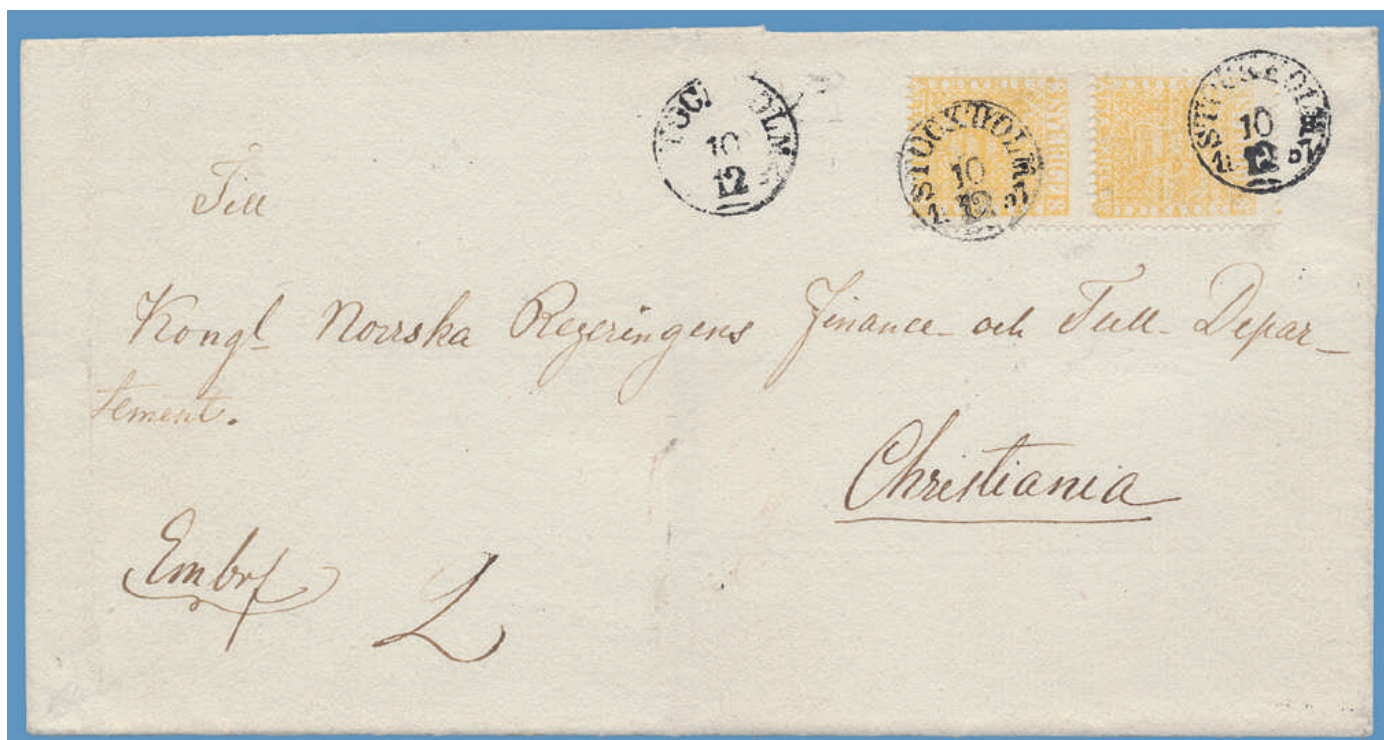 STOCKHOLM
10
12
STOCKHOLM
10
12
STOCKHOLM
10
12
SVERIGE
Till
Kongl Norrska Regeringens Finance och Tull Depar-
tement.
Christiania
Embrf
2